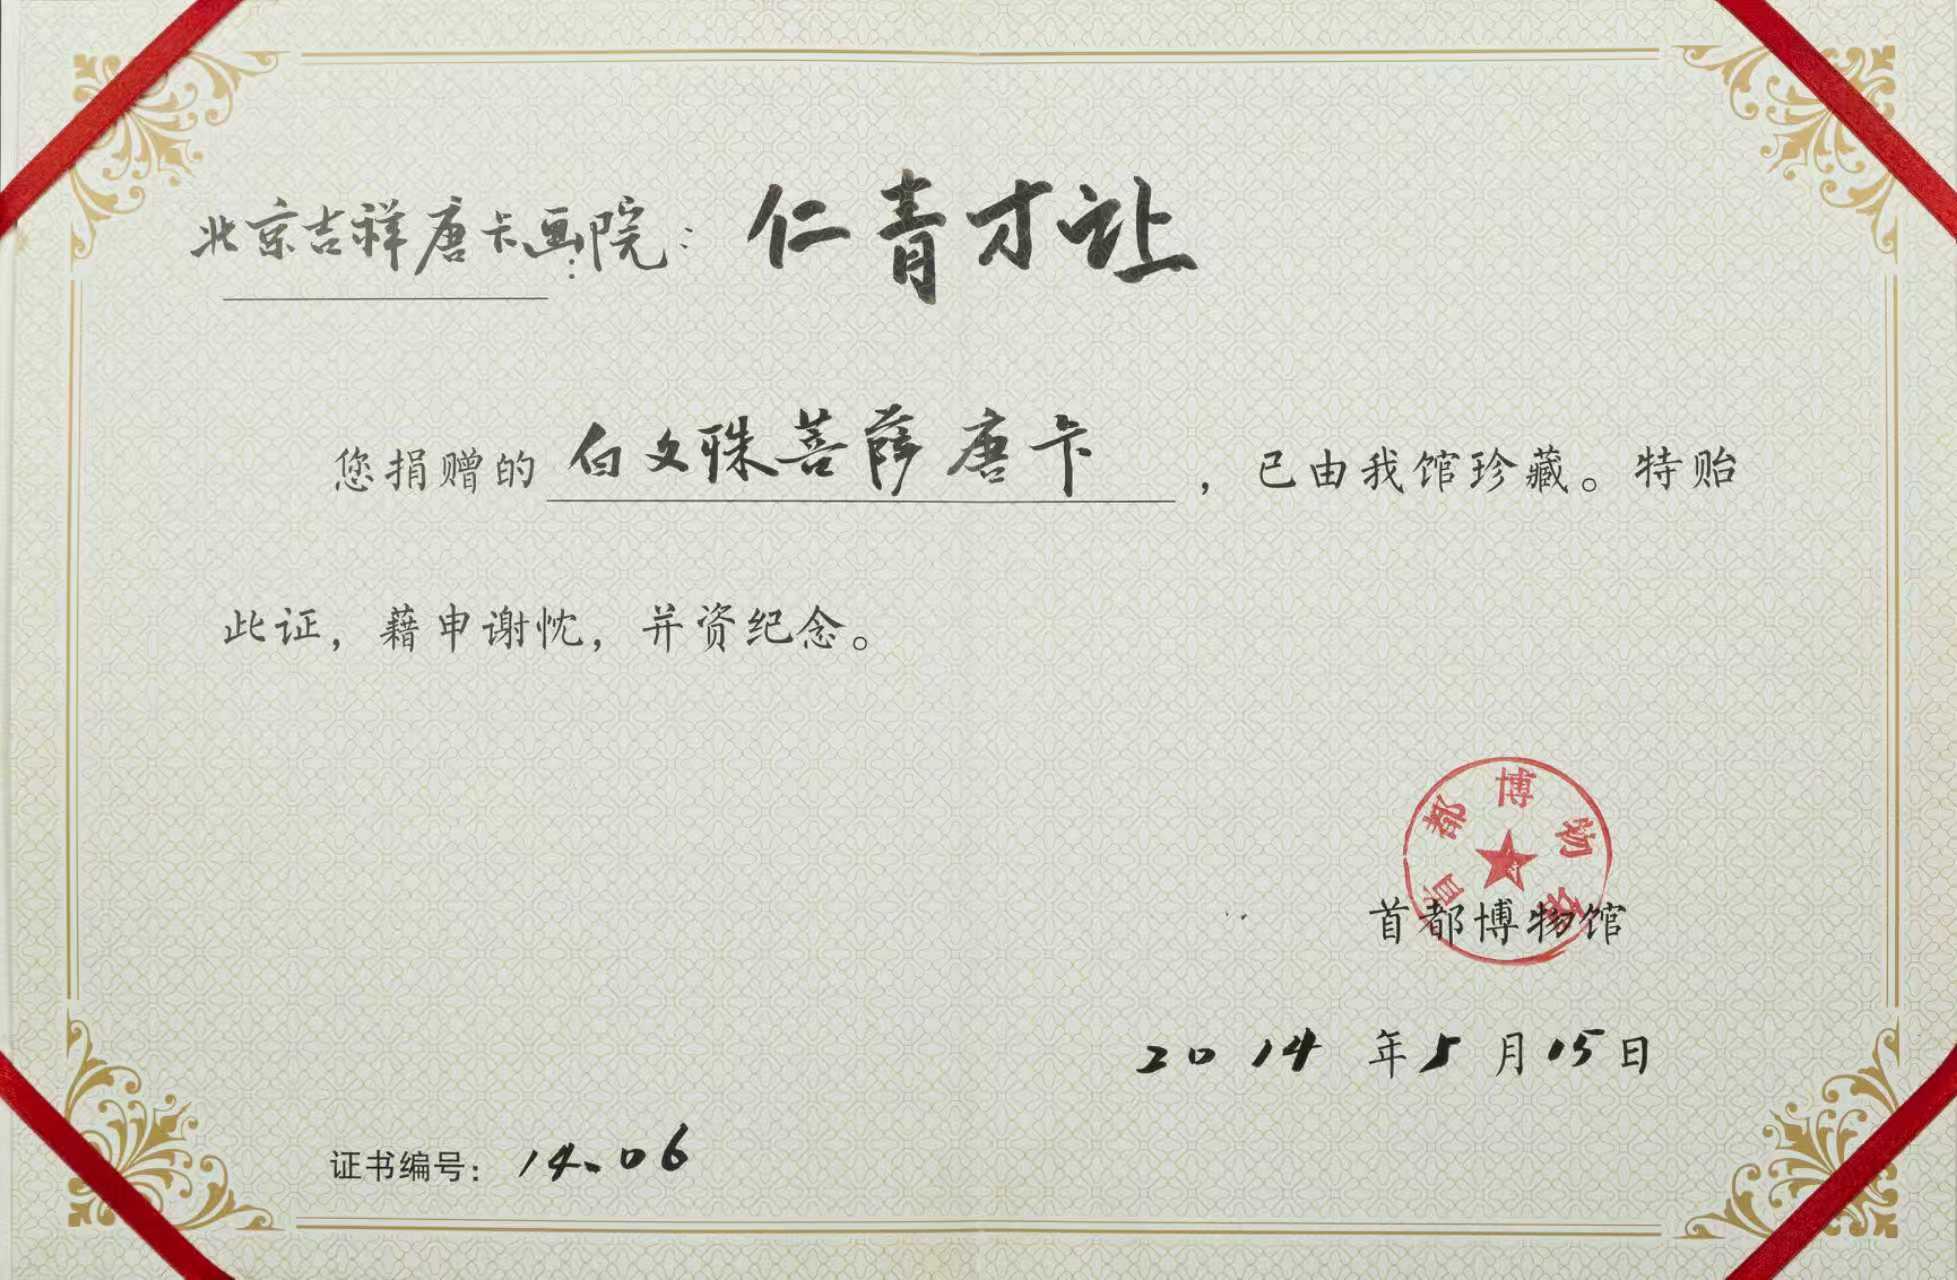 北京吉祥唐卡画院：仁青才让
您捐赠的 白文殊菩萨唐卡 ，已由我馆珍藏。特贻
此证，藉申谢忱，并资纪念。
首都博物馆
首都博物馆
2014 年 5 月 15 日
证书编号：14.06